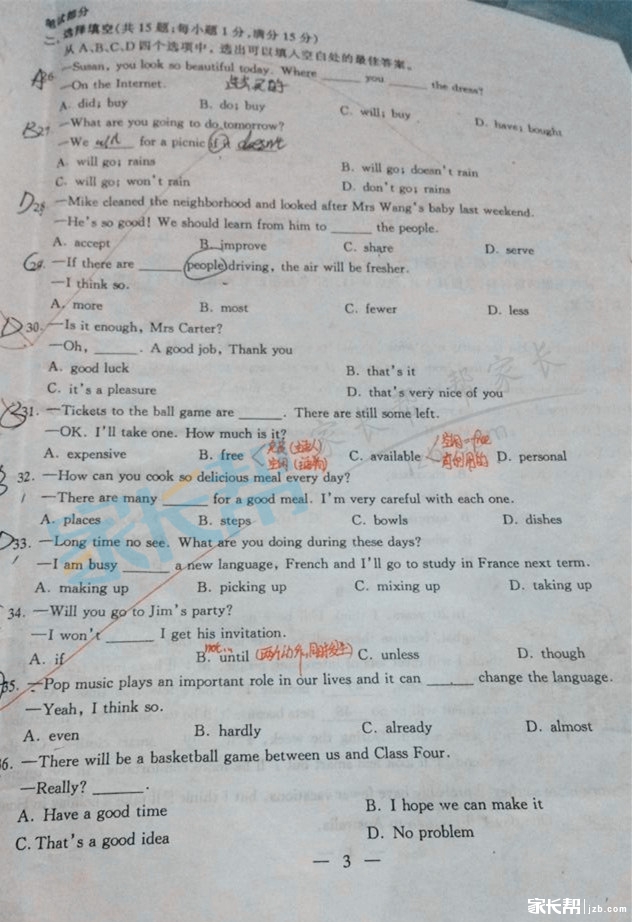 笔试部分
二、选择填空(共15题;每小题1分,满分15分)
从A、B、C、D四个选项中，选出可以填入空白处的最佳答案。
A26. —Susan, you look so beautiful today. Where ______ you ______ the dress?
—On the Internet.
A. did; buy B. do; buy C. will; buy D. have; bought
B27. —What are you going to do tomorrow?
—We will for a picnic if it doesn't
A. will go; rains B. will go; doesn't rain
C. will go; won't rain D. don't go; rains
D28. —Mike cleaned the neighborhood and looked after Mrs Wang's baby last weekend.
—He's so good! We should learn from him to ______ the people.
A. accept B. improve C. share D. serve
C29. —If there are ______ people driving, the air will be fresher.
—I think so.
A. more B. most C. fewer D. less
D30. —Is it enough, Mrs Carter?
—Oh, ______. A good job, Thank you
A. good luck B. that's it
C. it's a pleasure D. that's very nice of you
31. —Tickets to the ball game are ______. There are still some left.
—OK. I'll take one. How much is it?
A. expensive B. free C. available D. personal
32. —How can you cook so delicious meal every day?
—There are many ______ for a good meal. I'm very careful with each one.
A. places B. steps C. bowls D. dishes
D33. —Long time no see. What are you doing during these days?
—I am busy ______ a new language, French and I'll go to study in France next term.
A. making up B. picking up C. mixing up D. taking up
34. —Will you go to Jim's party?
—I won't ______ I get his invitation.
not...
A. if B. until C. unless D. though
35. —Pop music plays an important role in our lives and it can ______ change the language.
—Yeah, I think so.
A. even B. hardly C. already D. almost
36. —There will be a basketball game between us and Class Four.
—Really? ______.
A. Have a good time B. I hope we can make it
C. That's a good idea D. No problem
— 3 —
家长帮 jzb.com